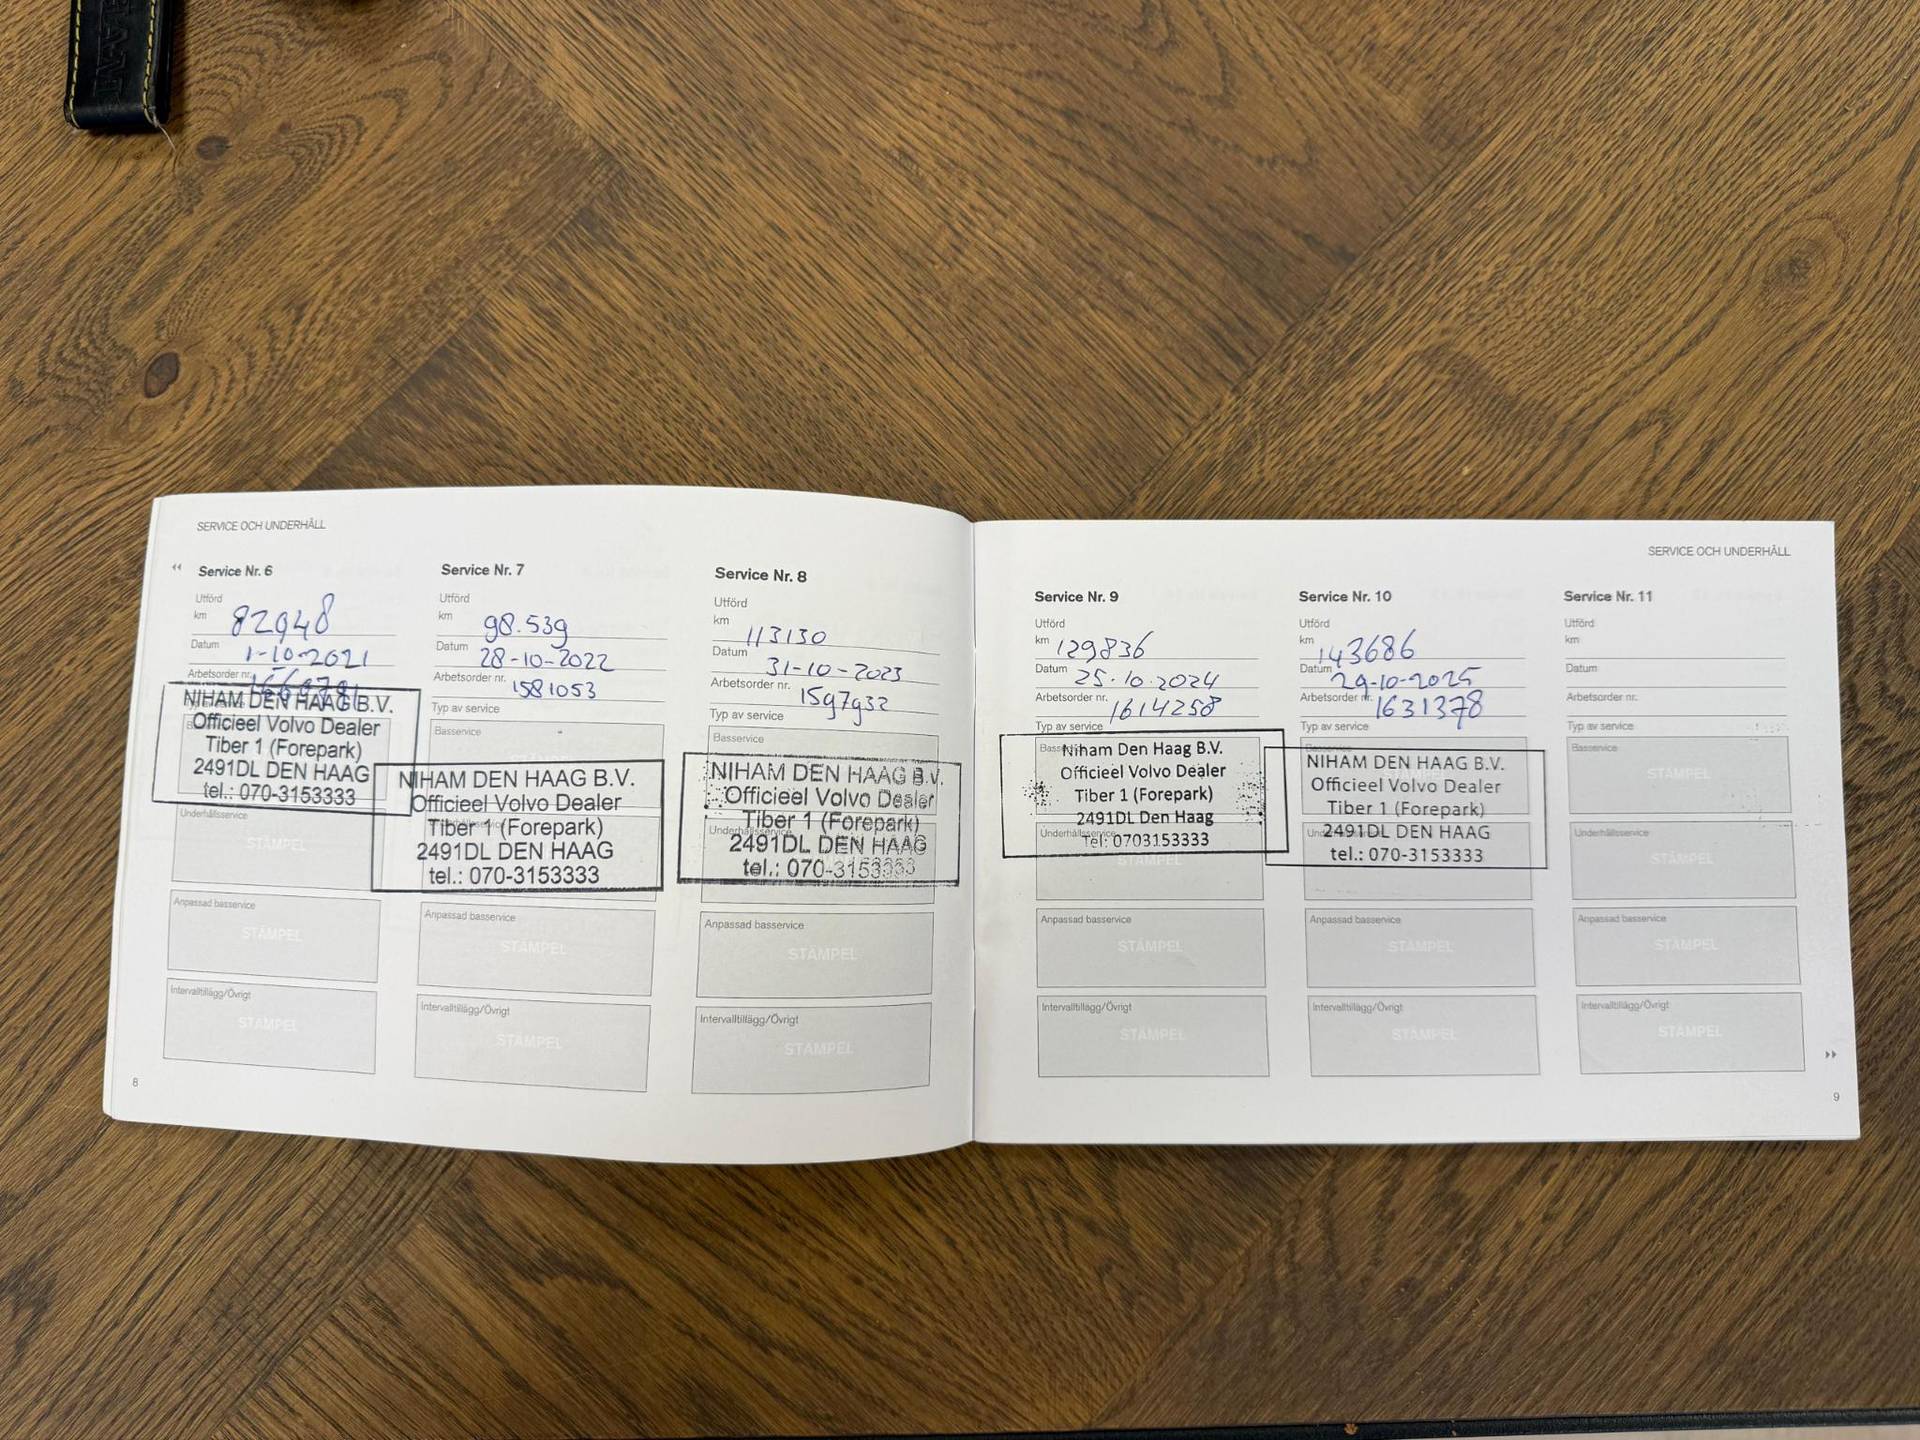 SERVICE OCH UNDERHÅLL
Service Nr. 6
Utförd
km 82948
Datum 1-10-2021
Arbetsorder nr.
NIHAM DEN HAAG B.V.
Officieel Volvo Dealer
Tiber 1 (Forepark)
2491DL DEN HAAG
tel.: 070-3153333
Underhållsservice
STÄMPEL
Anpassad basservice
STÄMPEL
Intervalltillägg/Övrigt
STÄMPEL
8
Service Nr. 7
Utförd
km 98.539
Datum 28-10-2022
Arbetsorder nr. 1581053
Typ av service
Basservice
NIHAM DEN HAAG B.V.
Officieel Volvo Dealer
Tiber 1 (Forepark)
2491DL DEN HAAG
tel.: 070-3153333
Anpassad basservice
STÄMPEL
Intervalltillägg/Övrigt
STÄMPEL
Service Nr. 8
Utförd
km 113130
Datum 31-10-2023
Arbetsorder nr. 1597932
Typ av service
Basservice
NIHAM DEN HAAG B.V.
Officieel Volvo Dealer
Tiber 1 (Forepark)
Underhållsservice
2491DL DEN HAAG
tel.: 070-3153333
Anpassad basservice
STÄMPEL
Intervalltillägg/Övrigt
STÄMPEL
SERVICE OCH UNDERHÅLL
Service Nr. 9
Utförd
km 129836
Datum 25.10.2024
Arbetsorder nr. 1614258
Typ av service
Basservice
Niham Den Haag B.V.
Officieel Volvo Dealer
Tiber 1 (Forepark)
2491DL Den Haag
Underhållsservice
Tel: 0703153333
STÄMPEL
Anpassad basservice
STÄMPEL
Intervalltillägg/Övrigt
STÄMPEL
Service Nr. 10
Utförd
km 143686
Datum 29-10-2025
Arbetsorder nr. 1631378
Typ av service
Basservice
NIHAM DEN HAAG B.V.
STÄMPEL
Officieel Volvo Dealer
Tiber 1 (Forepark)
Underhållsservice
2491DL DEN HAAG
tel.: 070-3153333
Anpassad basservice
STÄMPEL
Intervalltillägg/Övrigt
STÄMPEL
Service Nr. 11
Utförd
km
Datum
Arbetsorder nr.
Typ av service
Basservice
STÄMPEL
Underhållsservice
STÄMPEL
Anpassad basservice
STÄMPEL
Intervalltillägg/Övrigt
STÄMPEL
9